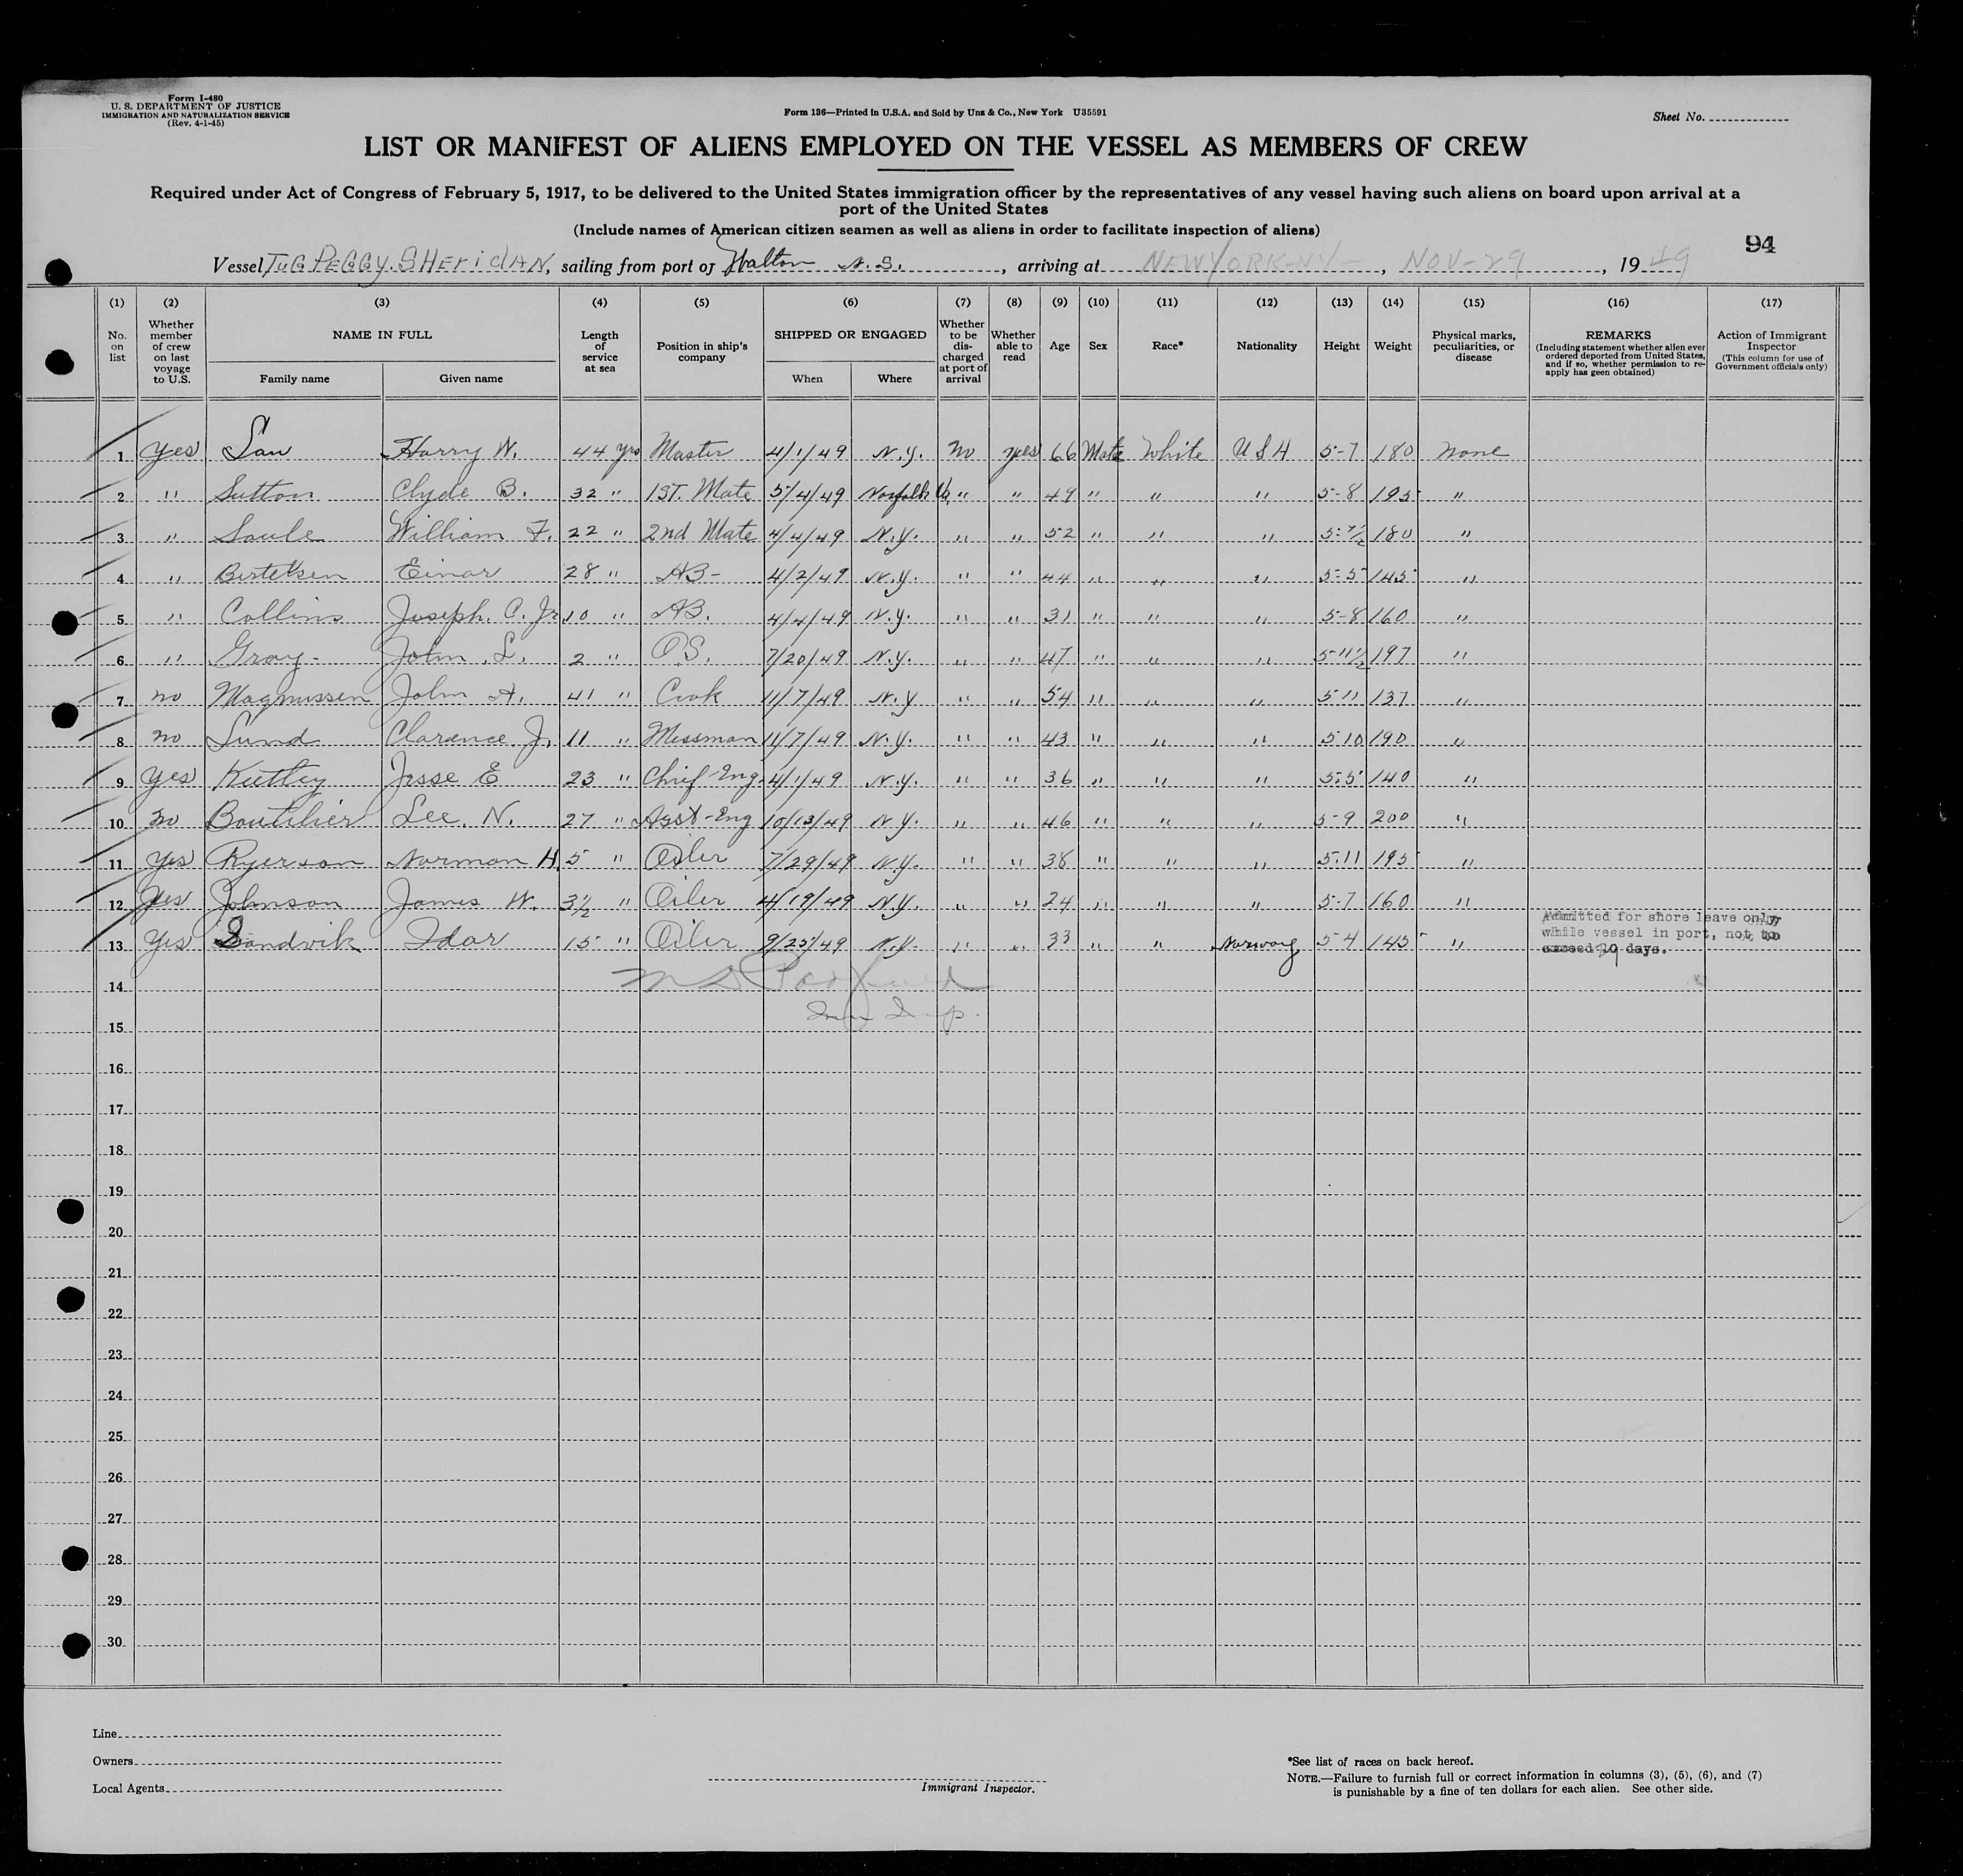 Form I-480
U. S. DEPARTMENT OF JUSTICE
IMMIGRATION AND NATURALIZATION SERVICE
(Rev. 4-1-45)
Form 136—Printed in U.S.A. and Sold by Unz & Co., New York U35591
Sheet No.
LIST OR MANIFEST OF ALIENS EMPLOYED ON THE VESSEL AS MEMBERS OF CREW
Required under Act of Congress of February 5, 1917, to be delivered to the United States immigration officer by the representatives of any vessel having such aliens on board upon arrival at a
port of the United States
(Include names of American citizen seamen as well as aliens in order to facilitate inspection of aliens)
94
Vessel TUG PEGGY. SHERIDAN, sailing from port of Walton N. S., arriving at NEW YORK-NY-, NOV-29, 1949
(1) (2) (3) (4) (5) (6) (7) (8) (9) (10) (11) (12) (13) (14) (15) (16) (17)
No. on list
Whether member of crew on last voyage to U.S.
NAME IN FULL
Family name
Given name
Length of service at sea
Position in ship's company
SHIPPED OR ENGAGED
When
Where
Whether to be discharged at port of arrival
Whether able to read
Age
Sex
Race*
Nationality
Height
Weight
Physical marks, peculiarities, or disease
REMARKS
(Including statement whether alien ever
ordered deported from United States,
and if so, whether permission to re-
apply has geen obtained)
Action of Immigrant
Inspector
(This column for use of
Government officials only)
1 Yes Harry W. 44 yrs Master 4/1/49 N.Y. No yes 66 Male White 5-7 180 None
2 " Sutton Clyde B. 32 " 1ST. Mate 5/4/49 Norfolk Va. " " 49 " " " 5-8 195 "
3 " Soule William F. 22 " 2nd Mate 4/4/49 N.Y. " " 52 " " " 5-7½ 180 "
4 " Bertelsen Einar 28 " AB- 4/2/49 N.Y. " " 44 " " " 5-5 145 "
5 " Collins Joseph. C. Jr. 10 " AB. 4/4/49 N.Y. " " 31 " " " 5-8 160 "
6 " Gray- John L. 2 " O.S. 7/20/49 N.Y. " " 47 " " " 5-11½ 197 "
7 no Magnussen John A. 41 " Cook 11/7/49 N.Y " " 54 " " " 5-11 137 "
8 no Lund Clarence J. 11 " Messman 11/7/49 N.Y. " " 43 " " " 5-10 190 "
9 Yes Jesse E 23 " Chief-Eng. 4/1/49 N.Y. " " 36 " " " 5-5 140 "
10 no Boutilier Lee. N. 27 " Asst-Eng 10/13/49 N.Y. " " 46 " " " 5-9 200 "
11 Yes Ryerson Norman H 5 " Oiler 7/29/49 N.Y. " " 38 " " " 5-11 195 "
12 Yes Johnson James W. 3½ " Oiler 4/19/49 N.Y. " " 24 " " " 5-7 160 "
13 Yes Sandvik Idar 15 " Oiler 9/25/49 N.Y. " " 33 " " Norway 5-4 145 "
Admitted for shore leave only
while vessel in port, not to
exceed 29 days.
14
15
16
17
18
19
20
21
22
23
24
25
26
27
28
29
30
Line
Owners
Local Agents
Immigrant Inspector.
*See list of races on back hereof.
NOTE.—Failure to furnish full or correct information in columns (3), (5), (6), and (7)
is punishable by a fine of ten dollars for each alien. See other side.